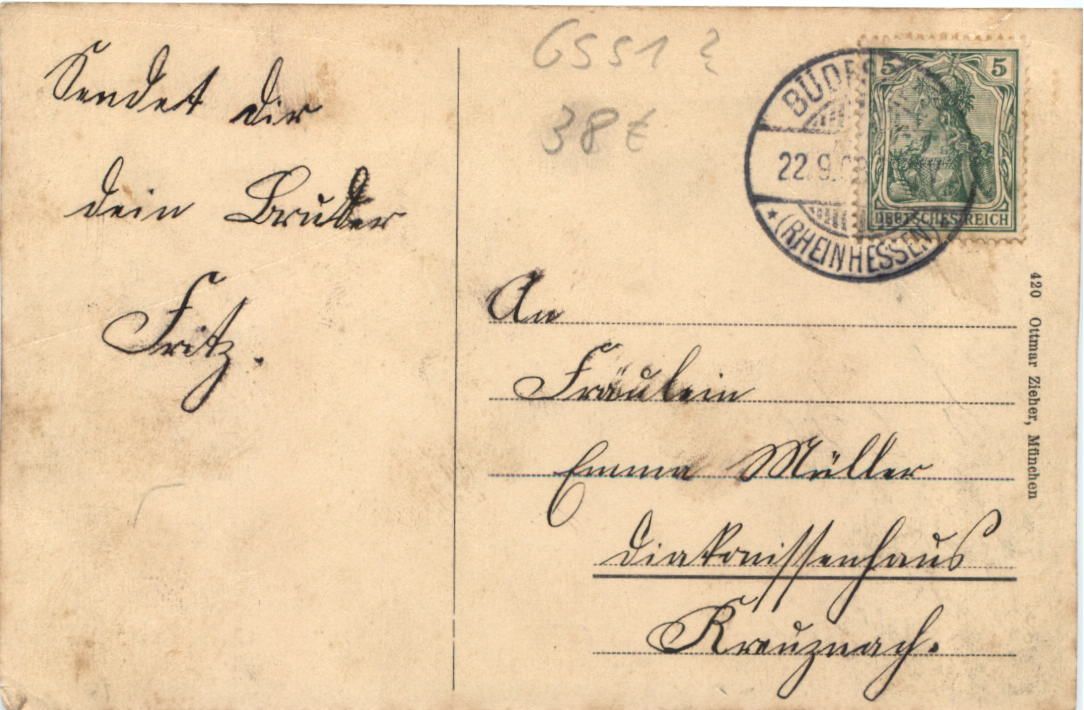 Sendet dir
dein Bruder
Fritz.
6551 ?
38 €
22.9.
(RHEINHESSEN)
5 5
DEUTSCHES REICH
An
Fräulein
Emma Müller
Diakonissenhaus
Kreuznach.
420 Ottmar Zieher, München